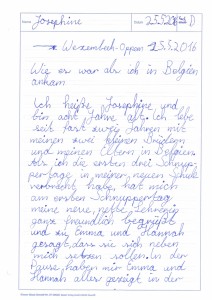 Josephine 25.5.2016
→ Wezembeek-Oppem 25.5.2016
Wie es war als ich in Belgien
ankam
Ich heiße Josephine und
bin acht Jahre alt. Ich lebe
seit fast zwei Jahren mit
meinen zwei kleinen Brüdern
und meinen Eltern in Belgien.
Als ich die ersten drei Schnup-
pertage in meiner neuen Schule
verbracht habe, hat mich
am ersten Schnuppertag
meine neue, nette Lehrerin
ganz freundlich begrüßt
und zu Emma und Hannah
gesagt, dass sie sich neben
mich setzen sollen. In der
Pause haben mir Emma und
Hannah alles gezeigt in der